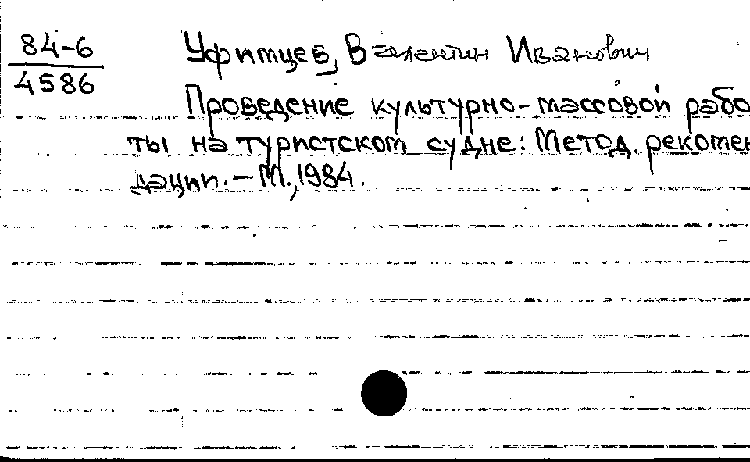 84-6
4586
Уфимцев, Валентин Иванович
Проведение культурно-массовой рабо
ты на туристском судне: Метод. рекомен
дации. - М., 1984.